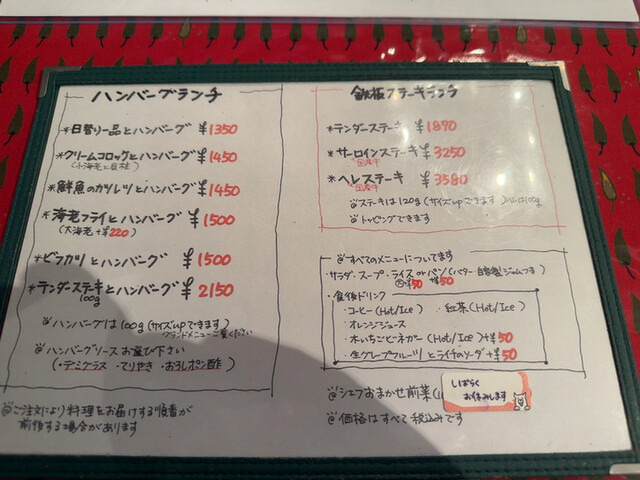 ハンバーグランチ
*日替り一品とハンバーグ ¥1350
*クリームコロッケとハンバーグ ¥1450
(小海老と貝柱)
*鮮魚のカツレツとハンバーグ ¥1450
*海老フライとハンバーグ ¥1500
(大海老+¥220)
*ビフカツとハンバーグ ¥1500
*テンダーステーキとハンバーグ ¥2150
100g
@ハンバーグは100g(サイズupできます)
グランドメニューご覧ください
@ハンバーグソースお選び下さい
(・デミグラス ・てりやき ・おろしポン酢)
@ご注文により料理をお届けする順番が
前後する場合があります
鉄板ステーキランチ
*テンダーステーキ ¥1870
*サーロインステーキ ¥3250
国産牛
*ヘレステーキ ¥3580
国産牛
@ステーキは120g(サイズupできます)ヘレは100g
@トッピングできます
@すべてのメニューについてます
・サラダ・スープ・ライス or パン(バター・自家製ジャムつき)
大+¥50 +¥50
・食後ドリンク
・コーヒー(Hot/Ice) ・紅茶(Hot/Ice)
・オレンジジュース
・木いちごビネガー(Hot/Ice)+¥50
・生グレープフルーツとライチのソーダ+¥50
@シェフおまかせ前菜
しばらく
お休みします
@価格はすべて税込みです